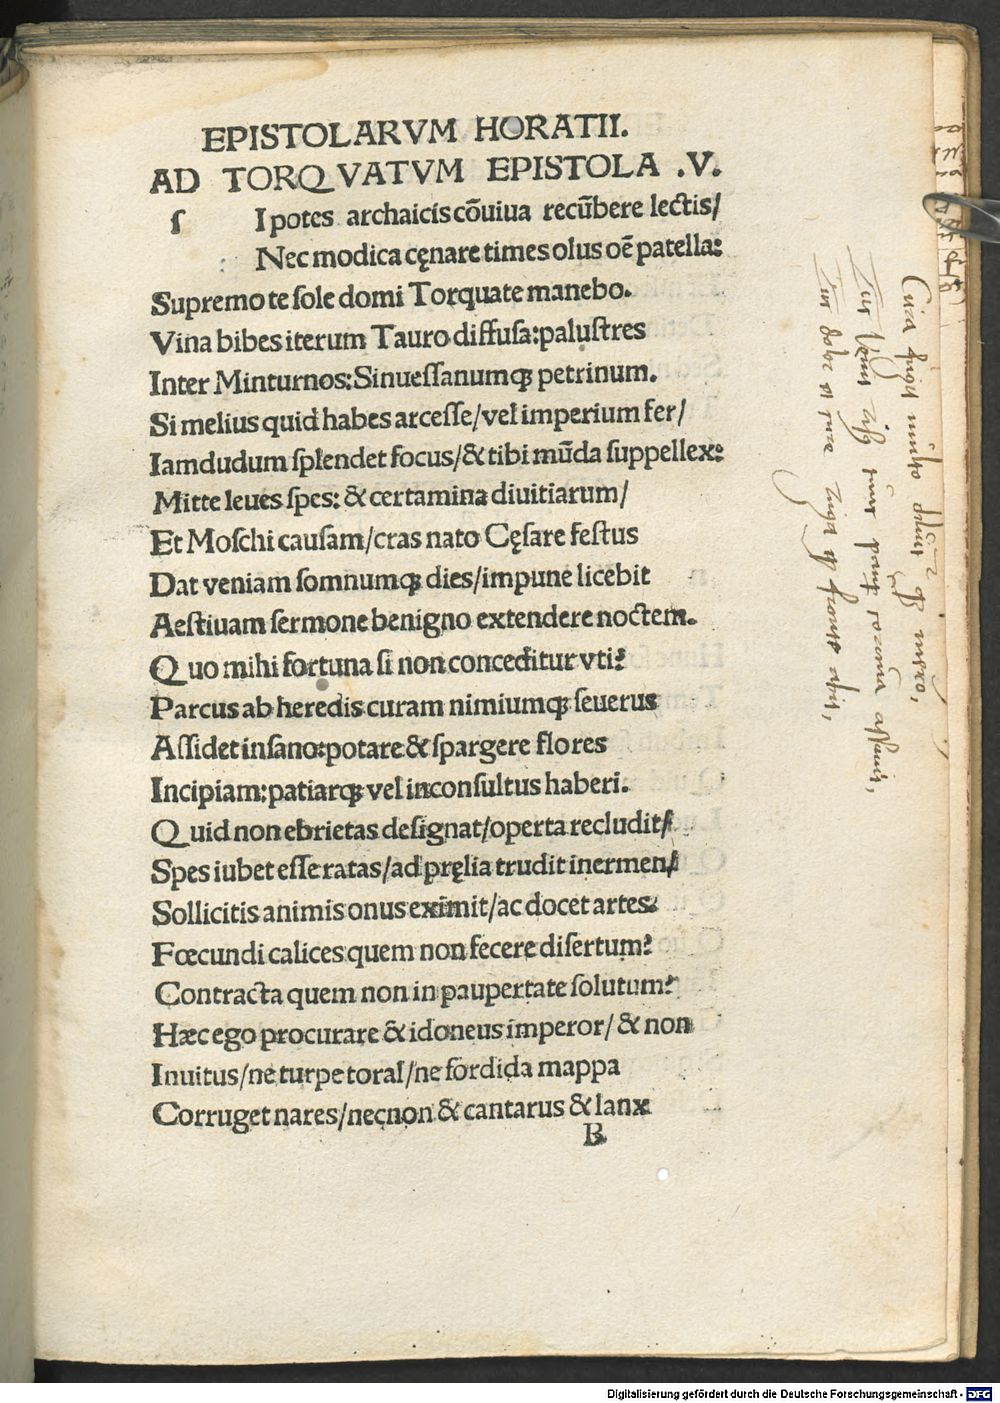 EPISTOLARVM HORATII.
AD TORQVATVM EPISTOLA .V.
ſ Ipotes archaicis cōuiua recūbere lectis/
Nec modica cęnare times olus oē patella:
Supremo te sole domi Torquate manebo.
Vina bibes iterum Tauro diffusa:paluſtres
Inter Minturnos:Sinueſſanumqꝫ petrinum.
Si melius quid habes arceſſe/vel imperium fer/
Iamdudum ſplendet focus/& tibi mūda ſuppellex:
Mitte leues ſpes: & certamina diuitiarum/
Et Moſchi cauſam/cras nato Cęſare feſtus
Dat veniam ſomnumqꝫ dies/impune licebit
Aeſtiuam ſermone benigno extendere noctem.
Quo mihi fortuna ſi non conceditur vti?
Parcus ab heredis curam nimiumqꝫ ſeuerus
Aſſidet inſano:potare & ſpargere flores
Incipiam:patiarqꝫ vel inconſultus haberi.
Quid non ebrietas deſignat/operta recludit/
Spes iubet eſſe ratas/ad pręlia trudit inermen/
Sollicitis animis onus eximit/ac docet artes:
Fœcundi calices quem non fecere diſertum?
Contracta quem non in paupertate ſolutum?
Hæc ego procurare & idoneus imperor/& non
Inuitus/ne turpe toral/ne ſordida mappa
Corruget nares/necnon & cantarus & lanx
B
Digitalisierung gefördert durch die Deutsche Forschungsgemeinschaft - DFG